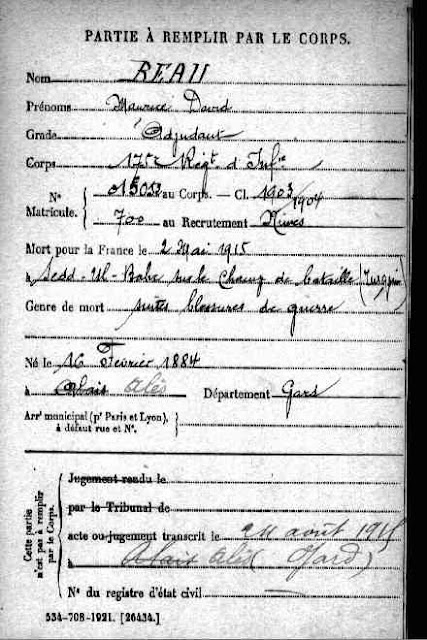 PARTIE À REMPLIR PAR LE CORPS.
Nom REAU
Prénoms Maurice David
Grade Adjudant
Corps 175e Régt. d'Infie
N° Matricule. { 015053 au Corps. — Cl. 1903/1904
700 au Recrutement Nimes
Mort pour la France le 2 Mai 1915
à Sedd-Ul-Bahr sur le Champ de bataille (Turquie)
Genre de mort suites blessures de guerre
Né le 16 Fevrier 1884
à Alais Alès Département Gard
Arrt municipal (pr Paris et Lyon), à défaut rue et N°. }
Cette partie n'est pas à remplir par le Corps. {
Jugement rendu le
par le Tribunal de
acte ou jugement transcrit le 24 août 1915
à Alais Alès (Gard)
N° du registre d'état civil —
534-708-1921. [26434.]